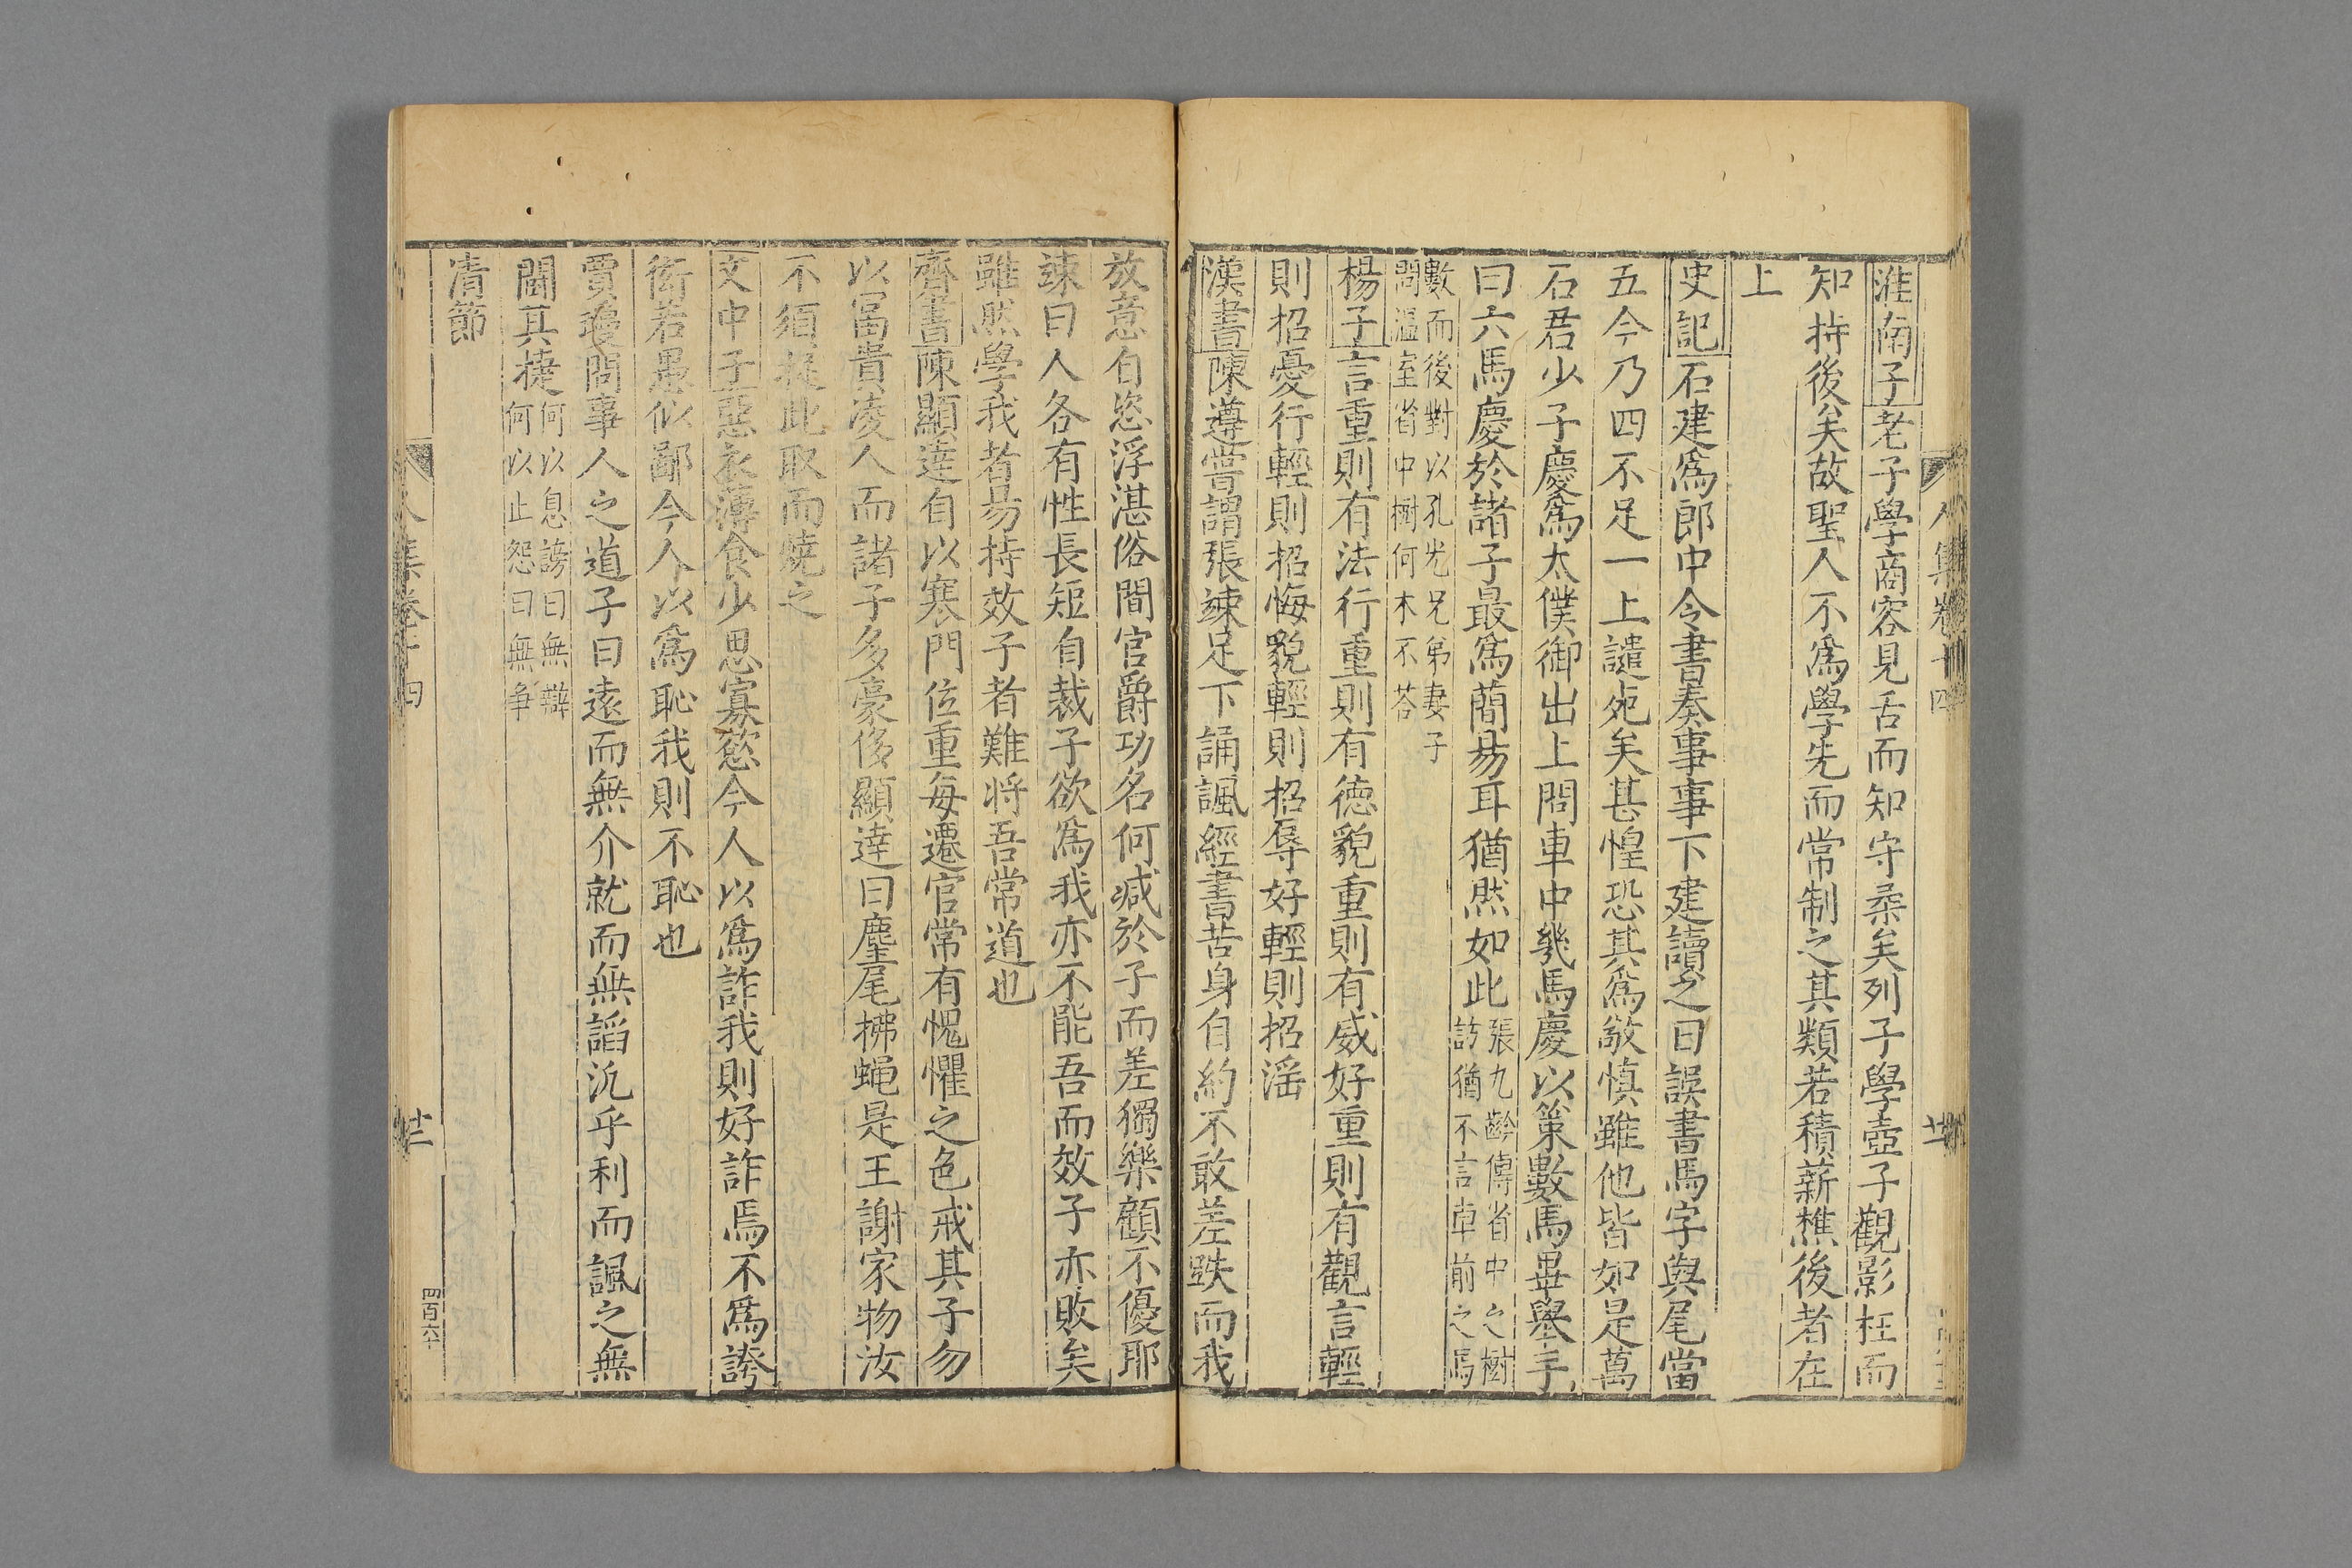 淮南子老子學商容見舌而知守柔矣列子學壺子觀影枉而
知持後矣故聖人不爲學先而常制之其類若積薪樵後者在
上
史記石建爲郎中令書奏事事下建讀之曰誤書馬字與尾當
五今乃四不足一上譴死矣甚惶恐其爲敬慎雖他皆如是萬
石君少子慶爲太僕御出上問車中幾馬慶以策數馬畢舉手
曰六馬慶於諸子最爲蕳易耳猶然如此張九齡傳省中之樹
訪猶不言車前之馬
數而後對以孔光兄弟妻子
問溫室省中樹何木不荅
楊子言重則有法行重則有徳貌重則有威好重則有觀言輕
則招憂行輕則招悔貌輕則招辱好輕則招滛
漢書陳遵嘗謂張竦足下誦諷經書苦身自約不敢差跌而我
放意自恣浮湛俗間官爵功名何减於子而差獨樂顧不優耶
竦曰人各有性長短自裁子欲爲我亦不能吾而效子亦敗矣
雖然學我者易持效子者難將吾常道也
齊書陳顯逹自以寒門位重每遷官常有愧懼之色戒其子勿
以冨貴凌人而諸子多豪侈顯逹曰麈尾拂蝇是王謝家物汝
不須捉此取而燒之
文中子惡衣薄食少思寡慾今人以爲詐我則好詐焉不爲誇
衒若愚似鄙今人以爲恥我則不恥也
賈瓊問事人之道子曰遠而無介就而無謟汎乎利而諷之無
鬪其㨗何以息謗曰無辯
何以止怨曰無争
清節
人集卷十四
廿二
四百六十